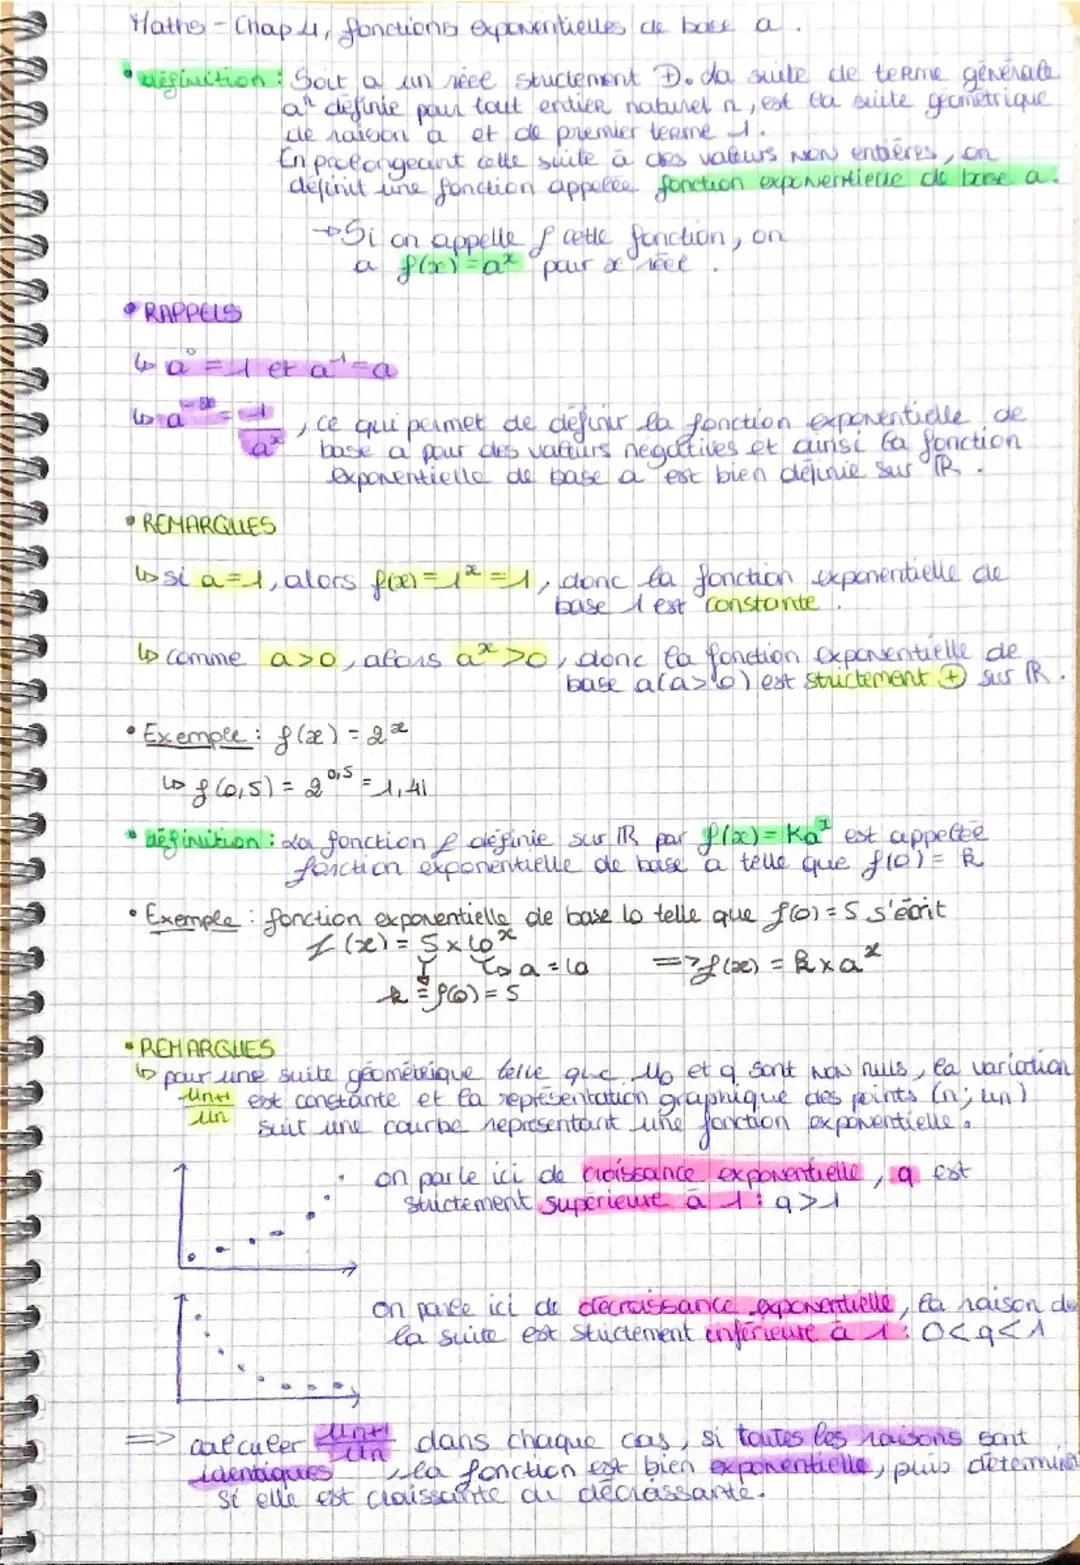 Maths - Chap 4, fonctions exponentielles de base a.
• définition : Soit a un réel strictement ⊕. La suite de terme générale
aⁿ définie pour tout entier naturel n, est la suite géométrique
de raison a et de premier terme 1.
En prolongeant cette suite à des valeurs non entières, on
définit une fonction appelée fonction exponentielle de base a.
→ Si on appelle f cette fonction, on
a f(x) = aˣ pour x réel.
• RAPPELS
↳ a⁰ = 1 et a⁻¹ = a
↳ a⁻ˣ = 1/aˣ, ce qui permet de définir la fonction exponentielle de
base a pour des valeurs négatives et ainsi la fonction
exponentielle de base a est bien définie sur ℝ.
• REMARQUES
↳ si a = 1, alors f(x) = 1ˣ = 1, donc la fonction exponentielle de
base 1 est constante.
↳ comme a > 0, alors aˣ > 0, donc la fonction exponentielle de
base a (a > 0) est strictement ⊕ sur ℝ.
• Exemple : f(x) = 2ˣ
↳ f(0,5) = 2^0,5 = 1,41
• définition : La fonction f définie sur ℝ par f(x) = Kaˣ est appelée
fonction exponentielle de base a telle que f(0) = k
• Exemple : fonction exponentielle de base 10 telle que f(0) = 5 s'écrit
f(x) = 5 × 10ˣ
↳ a = 10 => f(x) = k × aˣ
k = f(0) = 5
• REMARQUES
↳ pour une suite géométrique telle que u₀ et q sont non nuls, la variation
uₙ₊₁/uₙ est constante et la représentation graphique des points (n; un)
suit une courbe représentant une fonction exponentielle.
on parle ici de croissance exponentielle, q est
strictement supérieure à 1 : q > 1
on parle ici de décroissance exponentielle, la raison de
la suite est strictement inférieure à 1 : 0 < q < 1
=> calculer uₙ₊₁/uₙ dans chaque cas, si toutes les raisons sont
identiques, la fonction est bien exponentielle, puis déterminer
si elle est croissante ou décroissante.